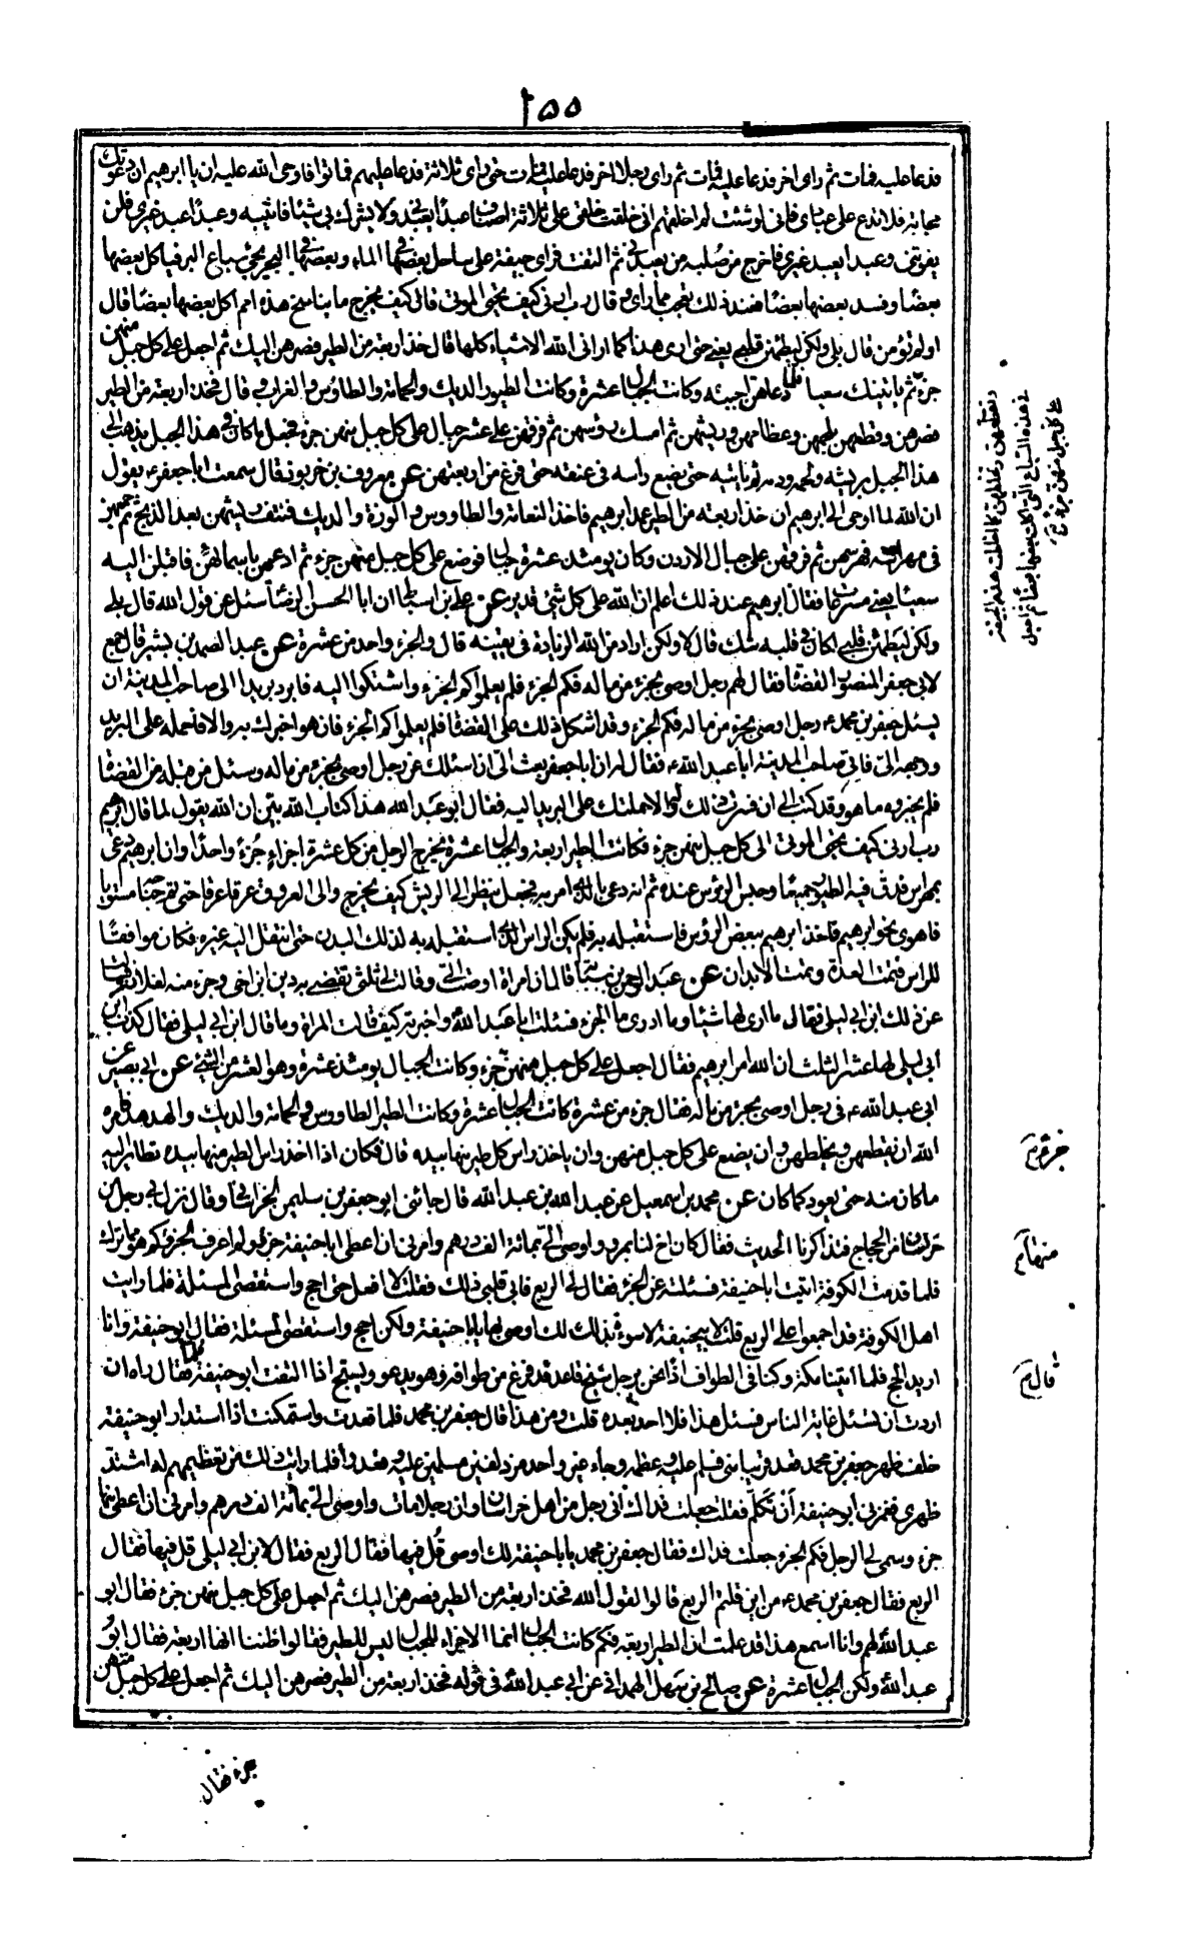 ١٥٥
فدعا عليه فمات ثم راى اخر فدعا عليه فمات ثم راى رجلا اخر فدعا عليه فمات حتى راى ثلاثة فدعا عليهم فماتوا فاوحى الله عليه ان يا ابراهيم ان دعوتك
مجابة فلا تدع على عبادى فانى لو شئت لم اخلقهم انى خلقت خلقى على ثلاثة اصناف عبدا يعبدنى ولا يشرك بى شيئا فاثيبه وعبدا عبد غيرى فلن
يفوتنى وعبدا يعبد غيرى فاخرج من صلبه من يعبدنى ثم التفت فراى جيفة على ساحل بعضها فى الماء وبعضها فى البحر يجئ سباع البر فياكل بعضها
بعضا وفسد بعضها بعضا فعند ذلك تعجب مما راى وقال رب ارنى كيف تحيى الموتى قال كيف يخرج ما يناسخ هذه امم اكل بعضها بعضا قال
اولم تؤمن قال بلى ولكن ليطمئن قلبى يعنى حتى ارى هذا كما ارانى الله الاشياء كلها قال خذ اربعة من الطير فصرهن اليك ثم اجعل على كل جبل منهن
جزء ثم ياتينك سعيا فلما دعاهن اجبنه وكانت الجبال عشرة وكانت الطيور الديك والحمامة والطاوس والغراب وقال فخذ اربعة من الطير
فصرهن وقطعهن بلحمهن وعظامهن وريشهن ثم امسك رؤسهن ثم فرقهن على عشر جبال على كل جبل منهن جزء فجعل ما كان فى هذا الجبل يذهب الى
هذا الجبل بريشه ولحمه ودمه ثم ياتيه حتى يضع راسه فى عنقه حتى فرغ من اربعتهن عن معروف بن خربوذ قال سمعت ابا جعفر ع يقول
ان الله لما اوحى الى ابرهيم ان خذ اربعة من الطير عمد ابرهيم فاخذ النعامة والطاووس والوزة والديك فنتف ريشهن بعد الذبح ثم جمعهن
فى مهراسه فهرسهن ثم فرقهن على جبال الاردن وكان يومئذ عشرة جبال فوضع على كل جبل منهن جزء ثم ادعهن باسمائهن فاقبلن اليه
سعيا يعنى مسرعات فقال ابرهيم عند ذلك اعلم ان الله على كل شئ قدير عن على بن اسباط ان ابا الحسن الرضا سئل عن قول الله قال بلى
ولكن ليطمئن قلبى اكان فى قلبه شك قال لا ولكن اراد من الله الزيادة فى يقينه قال والجزء واحد من عشرة عن عبد الصمد بن بشير قال جمع
لابى جعفر المنصور القضاة فقال لهم رجل اوصى بجزء من ماله فكم الجزء فلم يعلموا كم الجزء واشتكوا اليه فابرد بريدا الى صاحب المدينة ان
يسئل جعفر بن محمد ع رجل اوصى بجزء من ماله فكم الجزء وقد اشكل ذلك على القضاة فلم يعلموا كم الجزء فان هو اخبرك به والا فاحمله على البريد
ووجهه الى فاتى صاحب المدينة ابا عبد الله ع فقال له ان ابا جعفر بعث الى ان اسئلك عن رجل اوصى بجزء من ماله وسئل من قبله من القضاة
فلم يخبروه ما هو وقد كتب الى ان فسرت ذلك له والا حملتك على البريد اليه فقال ابو عبد الله هذا كتاب الله بين ان الله يقول لما قال ابرهيم
رب ارنى كيف تحيى الموتى الى كل جبل منهن جزء فكانت الطير اربعة والجبال عشرة يخرج الرجل من كل عشرة اجزاء جزء واحدا وان ابرهيم دعى
بمهراس فدق فيه الطيور جميعا وحبس الرؤس عنده ثم انه دعى بالذى امر به فجعل ينظر الى الريش كيف يخرج والى العروق عرقا عرقا حتى تم جناحه مستويا
فاهوى نحو ابرهيم فاخذ ابرهيم ببعض الرؤس فاستقبله به فلم يكن الراس الذى استقبله به لذلك البدن حتى انتقل اليه غيره فكان موافقا
للراس فتمت العدة وتمت الابدان عن عبد الرحمن بن سيابة قال ان امراة اوصت الى وقالت لى ثلثى تقضى به دين ابن اخى وجزء منه لفلانة فسالت
عن ذلك ابن ابى ليلى فقال ما ارى لها شيئا وما ادرى ما الجزء فسئلت ابا عبد الله واخبرته كيف قالت المراة وما قال ابن ابى ليلى فقال كذب ابن
ابى ليلى لها عشر الثلث ان الله امر ابرهيم فقال اجعل على كل جبل منهن جزء وكانت الجبال يومئذ عشرة وهو العشر من الشئ عن ابى بصير عن
ابى عبد الله ع فى رجل اوصى بجزء من ماله فقال جزء من عشرة كانت الجبال عشرة وكانت الطير الطاووس والحمامة والديك والهدهد فامره
الله ان يقطعهن ويخلطهن وان يضع على كل جبل منهن وان ياخذ راس كل طير منها بيده قال فكان اذا اخذ راس الطير منها بيده تطاير اليه
ما كان منه حتى يعود كما كان عن محمد بن اسمعيل عن عبد الله بن عبد الله قال جائنى ابو جعفر بن سليمن الخراسانى وقال نزل بى رجل من
خراسان من الحجاج فتذاكرنا الحديث فقال كان اخ لنا بمرو واوصى الى بمائة الف درهم وامرنى ان اعطى ابا حنيفة جزء ولم اعرف الجزء كم هو مما ترك
فلما قدمت الكوفة اتيت ابا حنيفة فسئلته عن الجزء فقال لى الربع فابى قلبى ذلك فقلت لا افعل حتى احج واستقصى المسئلة فلما رايت
اهل الكوفة قد اجمعوا على الربع قلت لابيحنيفة لا سوءة بذلك لك اوصى بها يا ابا حنيفة ولكن احج واستقصى المسئلة فقال ابو حنيفة وانا
اريد الحج فلما اتينا مكة وكنا فى الطواف اذا نحن برجل شيخ قاعد قد فرغ من طوافه وهو يدعو ويسبح اذا التفت ابو حنيفة فلما راه قال ان
اردت ان تسئل غاية الناس فسئل هذا فلا احد بعده قلت ومن هذا قال جعفر بن محمد فلما قعدت واستمكنت اذا استدار ابو حنيفة
خلف ظهر جعفر بن محمد فقعد قريبا منى فسلم عليه وعظمه وجاء غير واحد مزدلفين مسلمين عليه وقعدوا فلما رايت ذلك من تعظيمهم له اشتد
ظهرى فغمزنى ابو حنيفة ان تكلم فقلت جعلت فداك انى رجل من اهل خراسان وان رجلا مات واوصى الى بمائة الف درهم وامرنى ان اعطى منها
جزء وسمى لى الرجل فكم الجزء جعلت فداك فقال جعفر بن محمد يا ابا حنيفة لك اوصى قل فيها فقال الربع فقال لابن ابى ليلى قل فيها فقال
الربع فقال جعفر بن محمد ع من اين قلتم الربع قالوا لقول الله فخذ اربعة من الطير فصرهن اليك ثم اجعل على كل جبل منهن جزء فقال ابو
عبد الله لهم وانا اسمع هذا قد علمت ان الطير اربعة فكم كانت الجبال انما الاجزاء للجبال ليس للطير فقالوا ظننا انها اربعة فقال ابو
عبد الله ولكن الجبال عشرة عن صالح بن سهل الهمدانى عن ابى عبد الله فى قوله فخذ اربعة من الطير فصرهن اليك ثم اجعل على كل جبل منهن
جزء فقال
فتقطعهن وتخلطهن كما اختلطت هذه الجيفة
فى هذه السباع التى اكلت بعضها بعضا ثم اجعل
على كل جبل منهن جزء
منها م
قال م